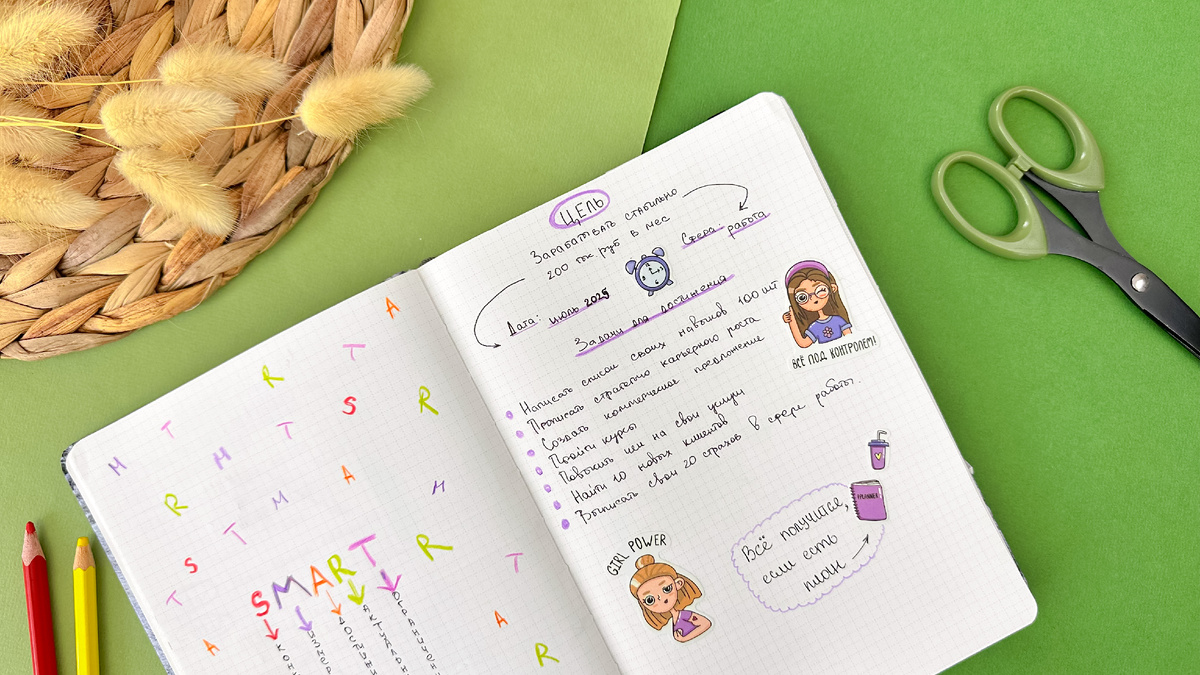 A
T
R
S
R
T
M
M
T
A
R
M
M
T
S
R
T
T
A
A
R
SMART
КОН
ИЗМЕР
ДОСТИЖИ
АКТУАЛЬН
ОГРАНИЧЕН
ЦЕЛЬ
Зарабатывать стабильно
200 тыс. руб в мес
Сфера: работа
Дата: июль 2025
Задачи для достижения
Написать список своих навыков 100 шт
Прописать стратегию карьерного роста
Создать коммерческое предложение
Пройти курсы
Повысить чек на свои услуги
Найти 10 новых клиентов
Выписать свои 20 страхов в сфере работы.
ВСЁ ПОД КОНТРОЛЕМ!
PLANNER
Всё получится,
если есть
план
GIRL POWER